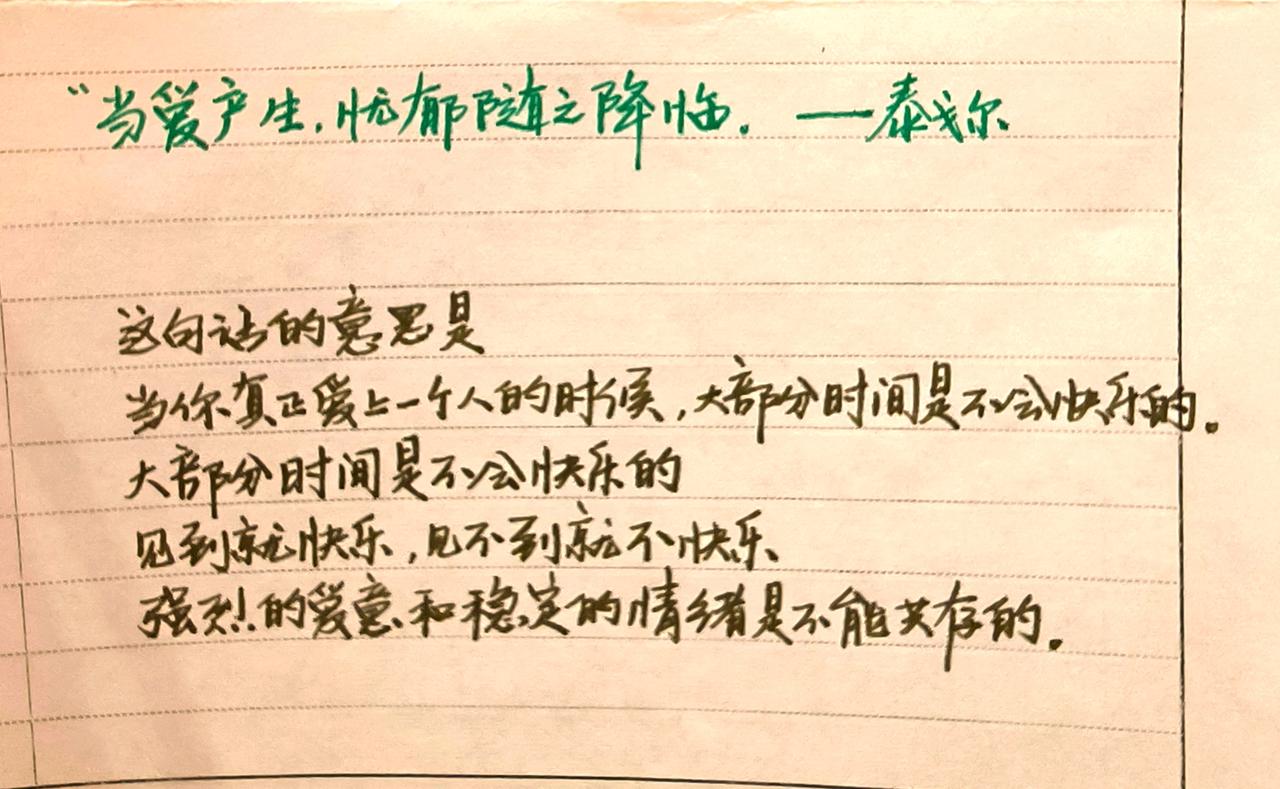 “当爱产生,忧郁随之降临. ——泰戈尔
这句话的意思是
当你真正爱上一个人的时候,大部分时间是不会快乐的.
大部分时间是不会快乐的
见到就快乐,见不到就不快乐、
强烈的爱意和稳定的情绪是不能共存的.